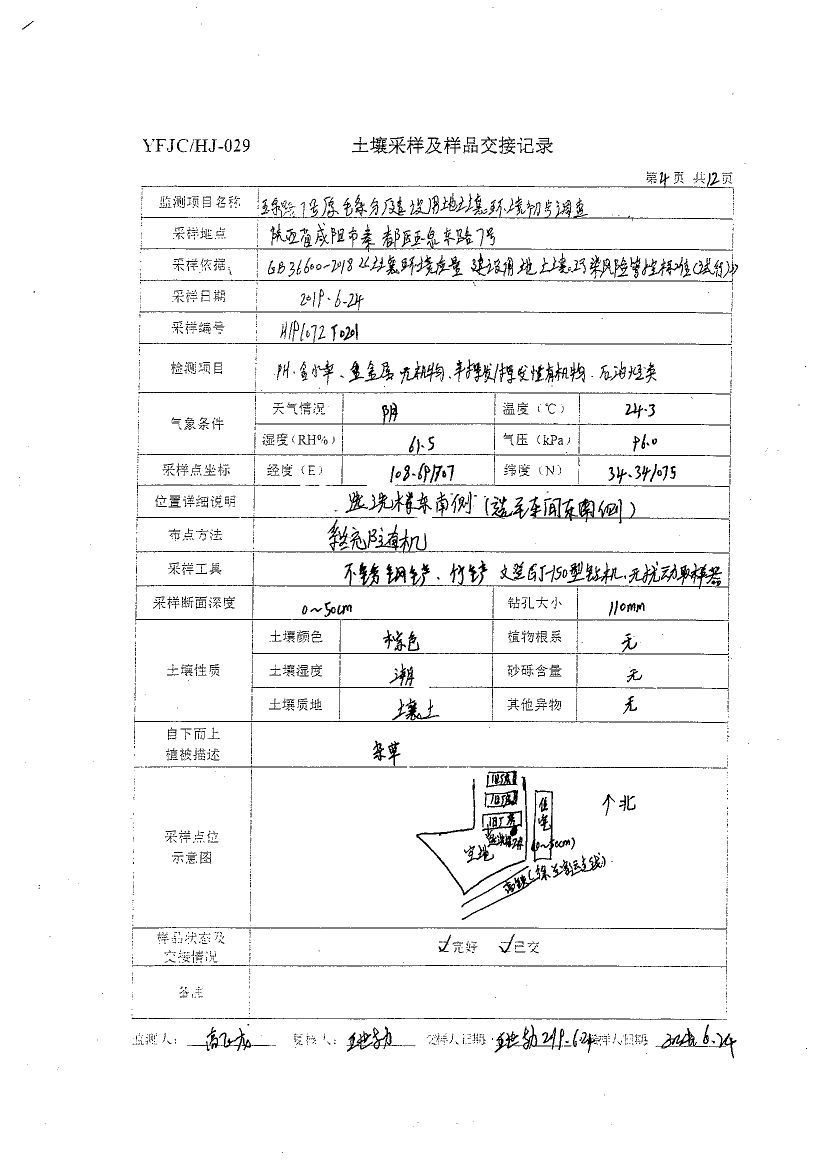 YFJC/HJ-029 土壤采样及样品交接记录
第4页 共12页
监测项目名称 路7号原毛条分厂建设用地土壤环境初步调查
采样地点 陕西省咸阳市秦都区玉泉东路7号
采样依据 GB36600-2018《土壤环境质量 建设用地土壤污染风险管控标准(试行)》
采样日期 2019.6.24
采样编号 T0201
检测项目 PH、含水率、重金属无机物、半挥发/挥发性有机物、石油烃类
气象条件 天气情况 阴 温度(℃) 24.3
湿度(RH%) 61.5 气压(kPa) 96.0
采样点坐标 经度(E) 108.691707 纬度(N) 34.341075
位置详细说明 东南侧(选毛车间东南侧)
布点方法 系统随机
采样工具 不锈钢铲、竹铲 QJ-150型钻机、无扰动取样器
采样断面深度 0~50cm 钻孔大小 110mm
土壤性质 土壤颜色 棕色 植物根系 无
土壤湿度 潮 砂砾含量 无
土壤质地 壤土 其他异物 无
自下而上
植被描述 杂草
采样点位
示意图
旧厂房
旧厂房
旧厂房
住宅
↑北
空地
(0~50cm)
高铁
样品状态及
交接情况 ☑完好 ☑已交
备注
监测人: 高飞龙 复核人: 交样人日期: 2019.6.24 接样人日期: 6.24